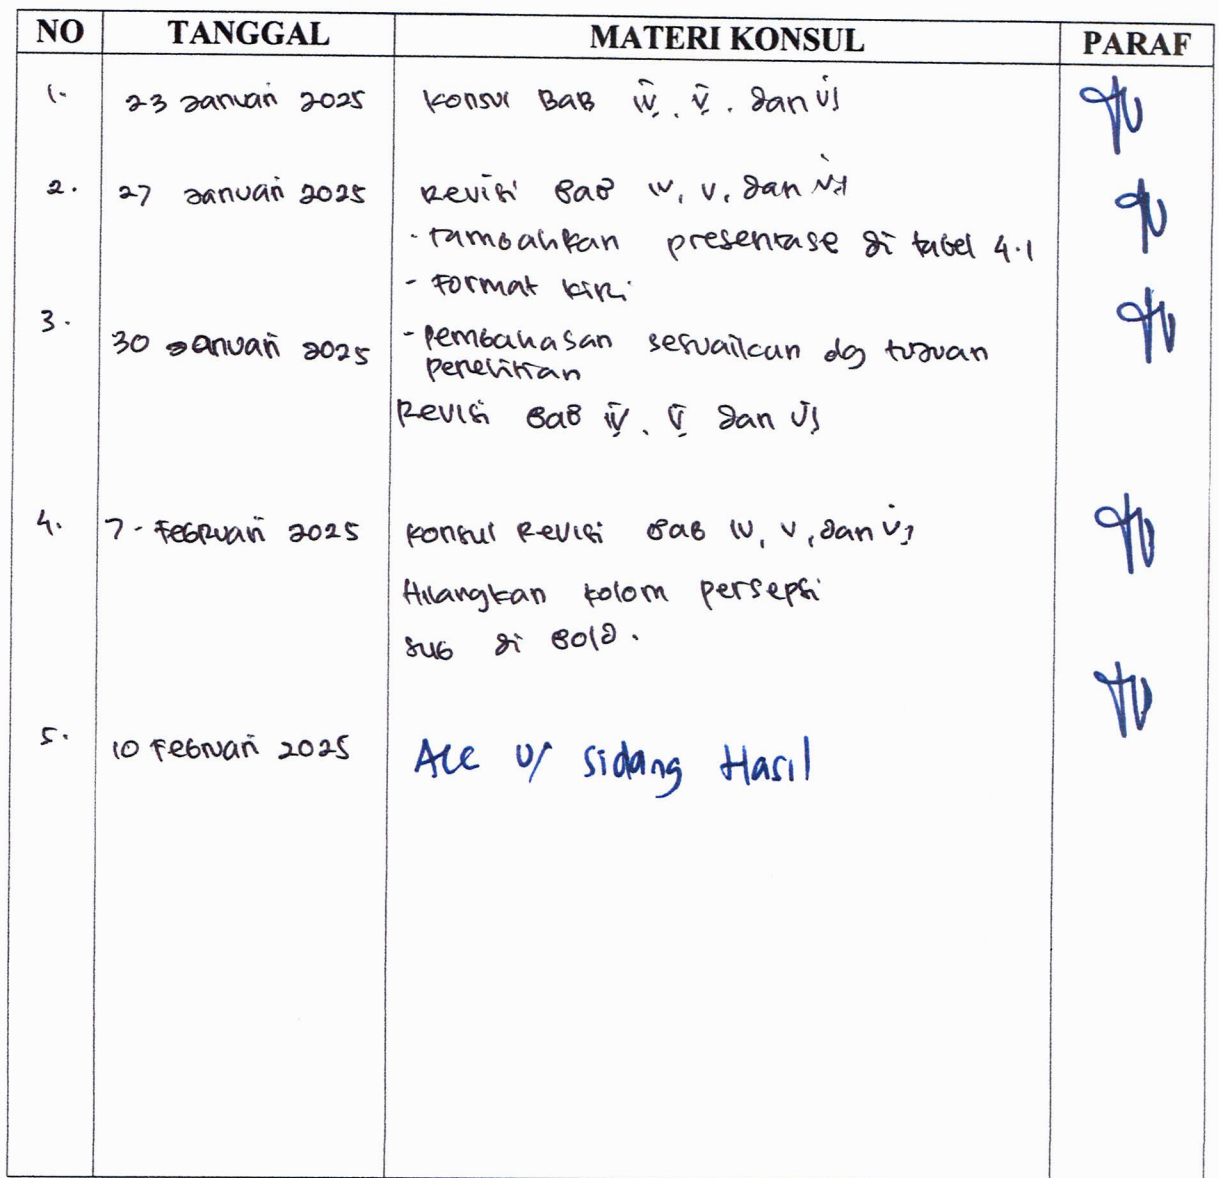 NO TANGGAL MATERI KONSUL PARAF
1. 23 Januari 2025 Konsul BAB IV, V, dan VI
2. 27 Januari 2025 Revisi BAB IV, V, dan VI
- Tambahkan presentase di tabel 4.1
- Format kiri
3. 30 Januari 2025 - Pembahasan sesuaikan dg tujuan
penelitian
Revisi BAB IV, V dan VI
4. 7 - Februari 2025 Konsul Revisi BAB IV, V, dan VI
Hilangkan kolom persepsi
sub di Bold.
5. 10 Februari 2025 Acc u/ Sidang Hasil